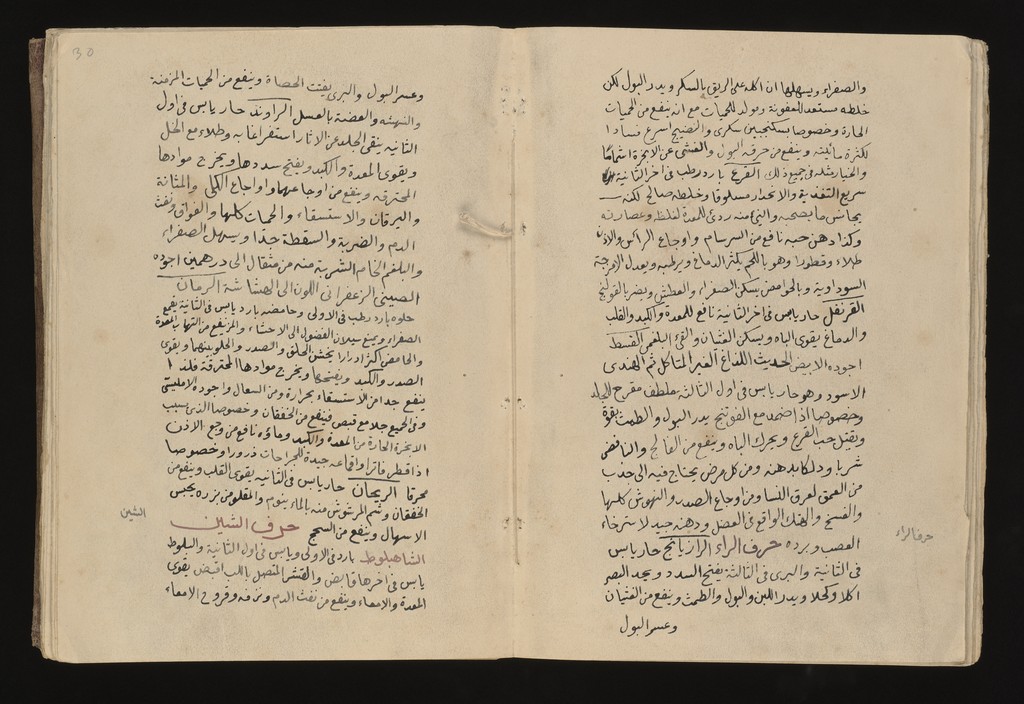 والصفراء ويسهلها ان اكله على الريق بالسكر ويدر البول لكن
خلطه مستعد للعفونة ومولد للحميات مع انه ينفع من الحميات
الحارة وخصوصا بسكنجبين سكرى والنضيج اسرع فسادا
لكثرة مائيته وينفع من حرقة البول والغشى عن الابخرة اشماما
والخيار مثله فى جميع ذلك القرع بارد رطب فى اخر الثانية
سريع التغذية والانحدار مسلوقا وخلطه صالح لكنه
يجانس ما يصحبه والنئ منه ردئ للمعدة لغلظه وعصارته
وكذا دهن حبه نافع من السرسام واوجاع الراس والاذن
طلاء وقطورا وهو باللحم يكثر الدماغ ويرطبه ويعدل الامزجة
السوداوية وبالحوامض يسكن الصفراء والعطش ويضر بالقولنج
القرنفل حار يابس فى اخر الثانية نافع للمعدة والكبد والقلب
والدماغ يقوى الباه ويسكن الغثيان والقئ البلغمى القسط
اجوده الابيض الحديث اللذاع الغير المتاكل ثم الهندى
الاسود وهو حار يابس فى اول الثالثة ملطف مقرح للجلد
وخصوصا اذا ضمد مع الفوتنج يدر البول والطمث بقوة
ويقتل حب القرع ويحرك الباه وينفع من الفالج والنافض
شربا ودلكا بدهنه ومن كل مرض يحتاج فيه الى جذب
من العمق لعرق النسا ومن اوجاع الصدر والنهوش كلها
والفسخ والهتك الواقع فى العضل ودهنه جيد لاسترخاء
العصب وبرده حرف الراء الرازيانج حار يابس
فى الثانية والبرى فى الثالثة يفتح السدد ويحد البصر
اكلا وكحلا ويدر اللبن والبول والطمث وينفع من الغثيان
وعسر البول
حرف الراء
30
وعسر البول والبرى يفتت الحصاة وينفع من الحميات المزمنة
والنهشه والعضة بالعسل الراوند حار يابس فى اول
الثانية ينقى الجلد عن الاثار استفراغا به وطلاء مع الخل
ويقوى المعدة والكبد ويفتح سددها ويخرج موادها
المحترقه وينفع من اوجاعهما واوجاع الكلى والمثانة
واليرقان والاستسقاء والحميات كلها والفواق ونفث
الدم والضربة والسقطة جدا ويسهل الصفراء
والبلغم الخام الشربة منه من مثقال الى درهمين اجوده
الصينى الزعفرانى اللون الى الهشاشة الرمان
حلوه بارد رطب فى الاولى وحامضه بارد يابس فى الثانية يقمع
الصفراء ويمنع سيلان الفضول الى الاحشاء والمز ينفع من التهاب المعدة
والحامض اكثر ادرارا يخشن الحلق والصدر والحلو يلينهما ويقوى
الصدر والكبد ويفتحها ويخرج موادها المحترقة فلذا
ينفع جدا من الاستسقاء بحرارة ومن السعال واجوده الامليسى
وفى الجميع جلا مع قبض فينفع من الخفقان وخصوصا الذى بسبب
الابخرة الحارة من المعدة والكبد وماؤه نافع من وجع الاذن
اذا قطر فاترا واقماعه جيدة للجراحات ذرورا وخصوصا
محرقا الريحان حار يابس فى الثانيه يقوى القلب وينفع من
الخفقان وشم المرشوش منه بالماء ينوم والمقلو من بزره يحبس
الاسهال وينفع من السحج حرف الشين
الشاهبلوط بارد فى الاولى ويابس فى اول الثانية والبلوط
يابس فى اخرها قابض والقشر المتصل باللب اقبض يقوى
المعدة والامعاء وينفع من نفث الدم ونزفه وقروح الامعاء
الشين